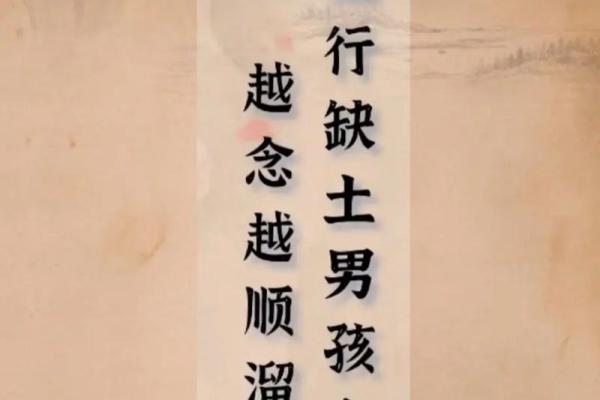 行缺土男孩
越念越顺溜